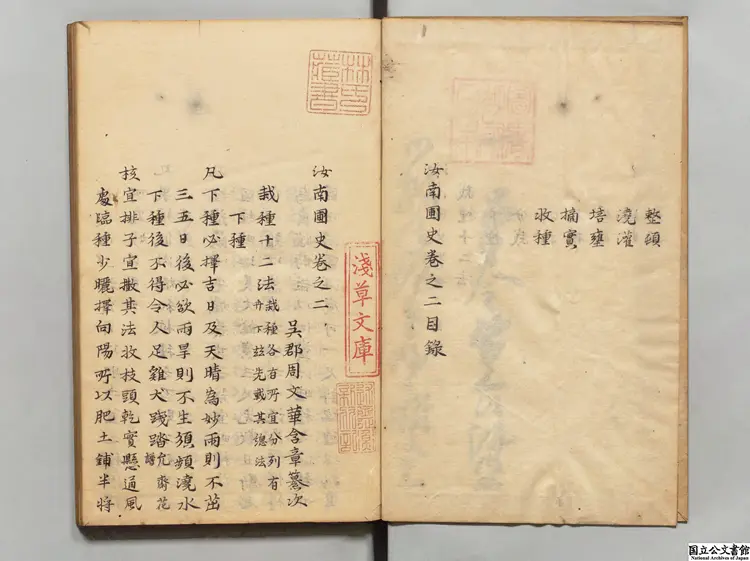 整頓
澆灌
培壅
摘實
收種
汝南圃史卷之二目錄
林氏藏書
淺草文庫
汝南圃史卷之二
吳郡周文華含章纂次
栽種十二法栽種各有所宜分列有
卉下玆先載其總法
下種
凡下種必擇吉日及天晴為妙雨則不茁
三五日後必欲雨旱則不生須頻澆水
下種後不得令人足雞犬踐踏允齋花
譜
核宜排子宜撒其法收枝頭乾實懸通風
處臨種少曬擇向陽所以肥土鋪半將
国立公文書館
National Archives of Japan